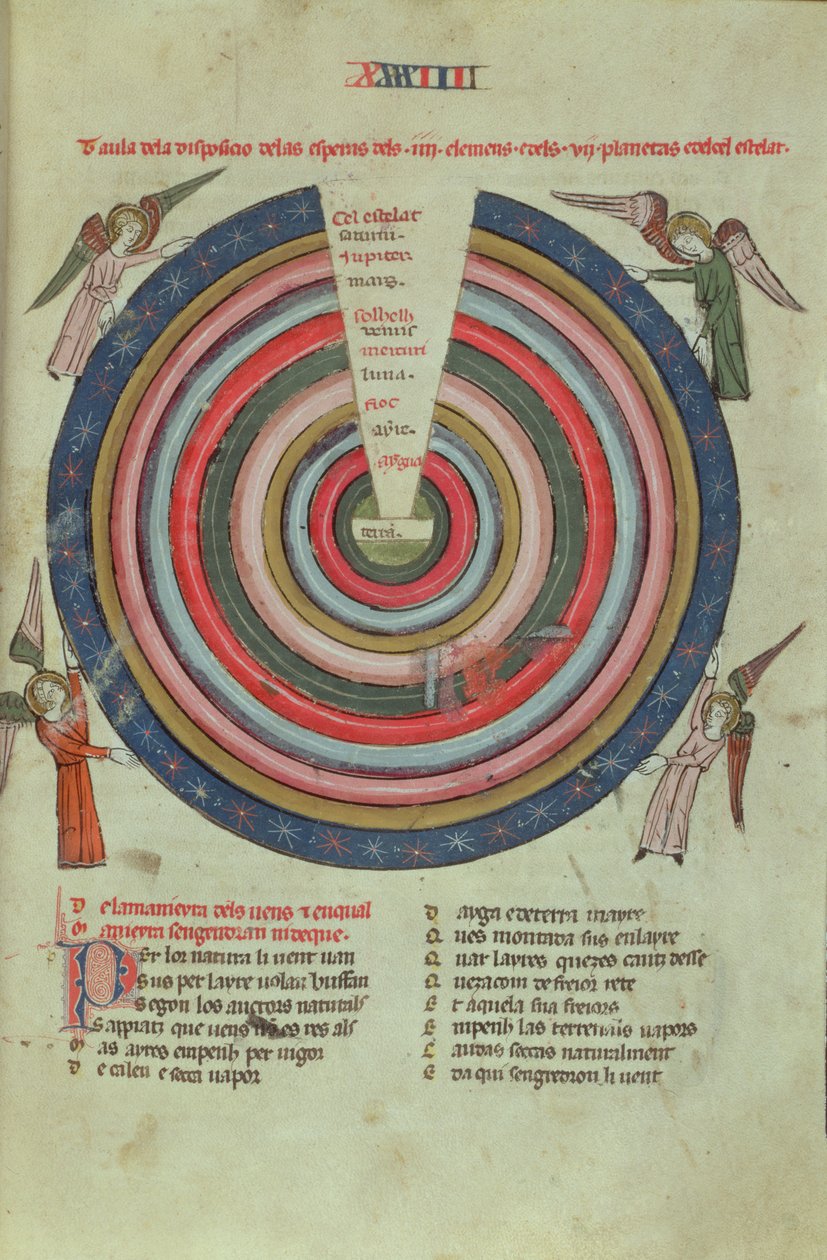 XXXIIII
Taula dela disposicio delas esperas dels .iiii. elemens. edels. vij. planetas edelcel estelat.
Cel estelat
saturnus.
Jupiter
mars.
solhelh
venus
mercuri
luna.
fioc
ayre.
aygua
terra.
D elamanieyra dels uens & enqual
M anieyra sengendran nideque.
PEr lor natura li uent uan
S us per layre uolan buffan
S egon los auctors naturals
S appiatz que uens es res als
M as ayres empenh per uigor
D e caleu e secca uapor
D ayga e de terra mayre
Q ues montada sus enlayre
Q uar layres quezes cautz desse
Q uezacom de freior rete
E t aquela sua freiors
E npenh las terrenals uapors
C audas seccas naturalment
E da qui sengedron li uent